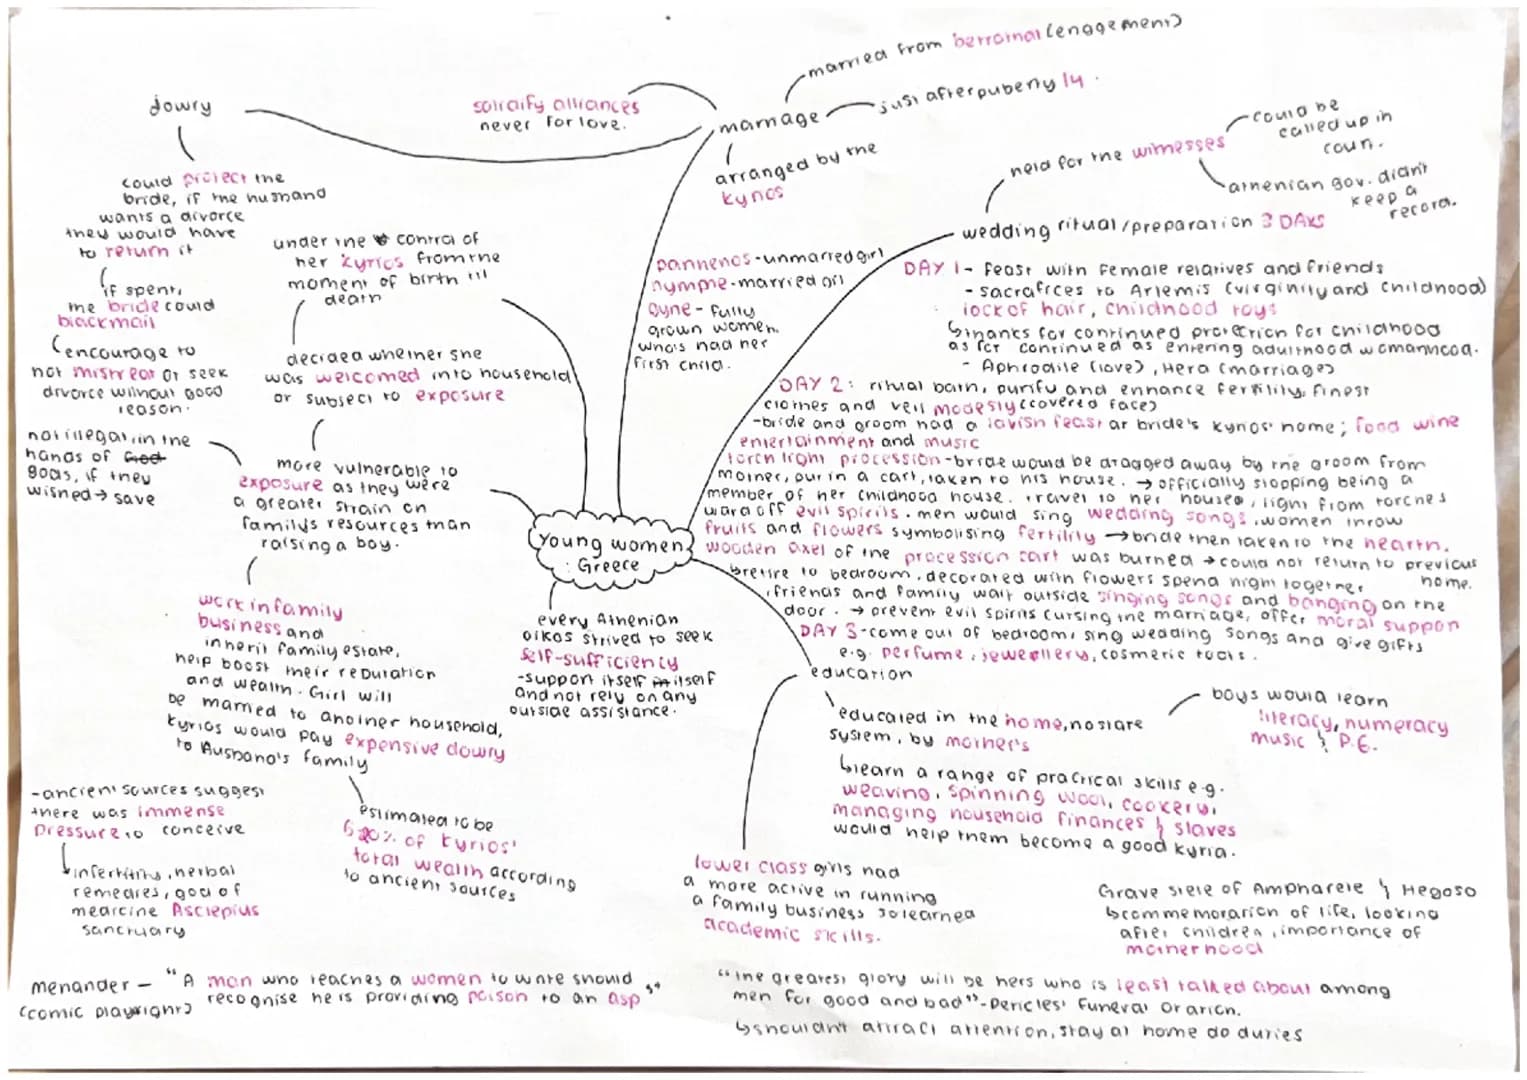 dowry
could protect the
bride, if the husband
wants a divorce
they would have
to return it
if spent,
the bride could
blackmail
encourage to
not mistreat or seek
divorce without good
reason.
solidify alliances
never for love.
marriage
married from betrothal (engagement)
just after puberty 14.
arranged by the
kyrios
under the control of
her kyrios from the
moment of birth till
death
decided whether she
was welcomed into household
or subject to exposure
more vulnerable to
exposure as they were
a greater strain on
family's resources than
raising a boy.
not illegal, in the
hands of God
gods, if they
wished → save
work in family
business and
inherit family estate,
help boost their reputation
and wealth. Girl will
be married to another household,
kyrios would pay expensive dowry
to husband's family
estimated to be
20% of kyrios'
total wealth according
to ancient sources
-ancient sources suggest
there was immense
pressure to conceive
infertility, herbal
remedies, god of
medicine Asclepius
sanctuary
parthenos - unmarried girl
nymphe - married girl
gyne - fully
grown women
who's had her
first child.
Young women
: Greece
every Athenian
oikos strived to seek
self-sufficiency
-support itself itself
and not rely on any
outside assistance.
wedding ritual/preparation 3 DAYS
held for the witnesses
could be
called up in
court.
athenian gov. didn't
keep a
record.
DAY 1 - feast with female relatives and friends
- sacrafices to Artemis (virginity and childhood)
lock of hair, childhood toys
↳thanks for continued protection for childhood
as for continued as entering adulthood womanhood.
- Aphrodite (love), Hera (marriage)
DAY 2: ritual bath, purify and enhance fertility, finest
clothes and veil modesty (covered face)
-bride and groom had a lavish feast at bride's kyrios' home; food wine
entertainment and music
torch light procession - bride would be dragged away by the groom from
mother, put in a cart, taken to his house. → officially stopping being a
member of her childhood house. travel to her house, light from torches
ward off evil spirits. men would sing wedding songs, women throw
fruits and flowers symbolising fertility → bride then taken to the hearth.
wooden axel of the procession cart was burned → could not return to previous
home.
↳retire to bedroom, decorated with flowers spend night together
, friends and family wait outside singing songs and banging on the
door. → prevent evil spirits cursing the marriage, offer moral support
DAY 3 - come out of bedroom, sing wedding songs and give gifts
e.g. perfume, jewellery, cosmetic tools.
education
educated in the home, no state
system, by mother's
boys would learn
literacy, numeracy
music & P.E.
↳learn a range of practical skills e.g.
weaving, spinning wool, cookery,
managing household finances & slaves
would help them become a good kyria.
lower class girls had
a more active in running
a family business so learned
academic skills.
Grave stele of Ampharete & Hegoso
↳commemoration of life, looking
after children, importance of
motherhood
menander - "A man who teaches a women to write should
(comic playwright) recognise he is providing poison to an asp"
"the greatest glory will be hers who is least talked about among
men for good and bad" - Pericles' Funeral Oration.
↳shouldn't attract attention, stay at home do duties